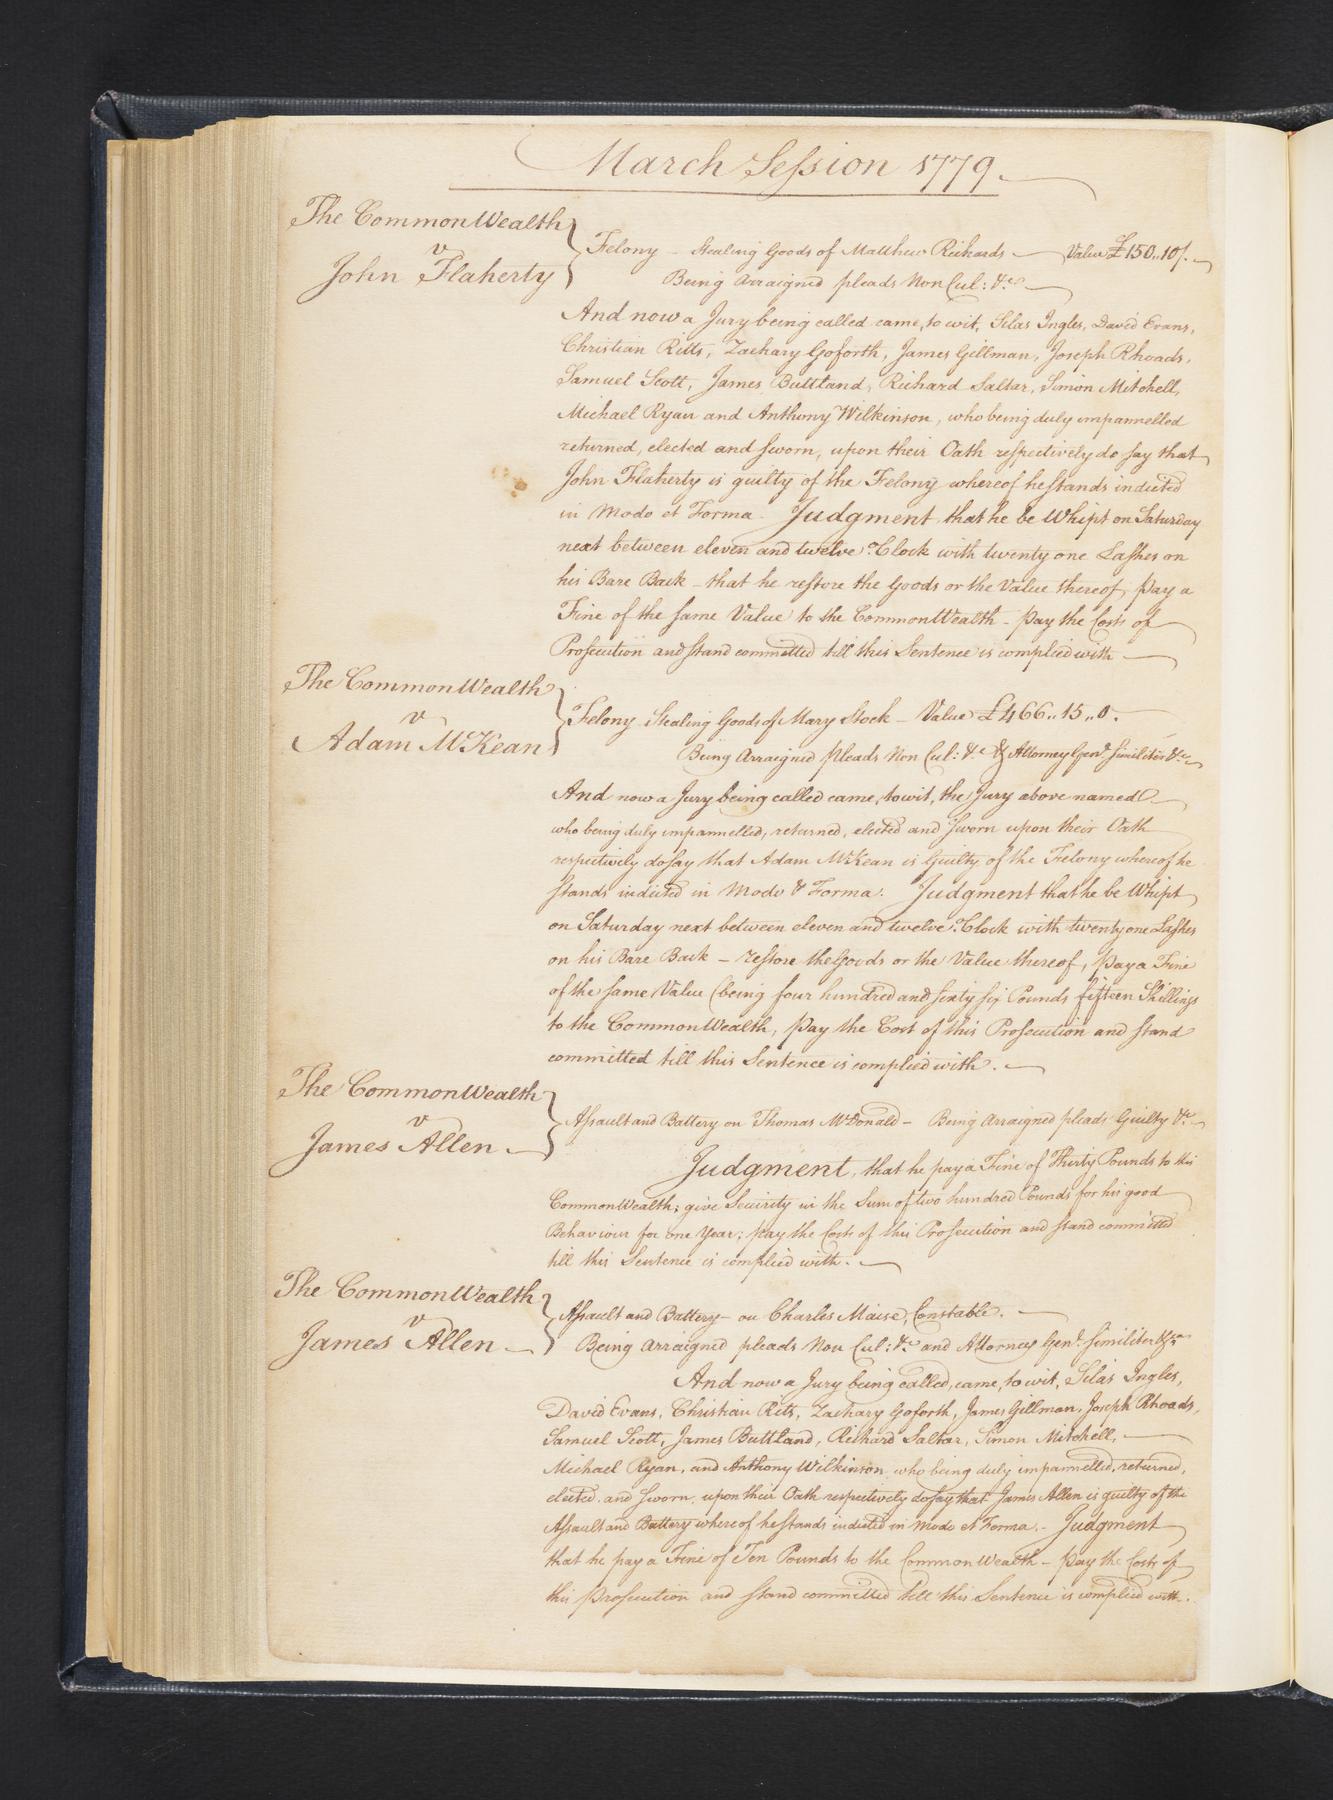 March Session 1779.
The CommonWealth
v
John Flaherty
Felony - Stealing Goods of Matthew Richards - Value £150..10/.
Being arraigned pleads Non Cul: &c
And now a Jury being called came, to wit, Silas Ingles, David Evans,
Christian Ritts, Zachary Goforth, James Gillman, Joseph Rhoads,
Samuel Scott, James Buttland, Richard Saltar, Simon Mitchell,
Michael Ryan and Anthony Wilkinson, who being duly impannelled
returned, elected and sworn, upon their Oath respectively do say that
John Flaherty is guilty of the Felony whereof he stands indicted
in Modo et Forma. Judgment, that he be Whipt on Saturday
next between eleven and twelve o'Clock with twenty one Lashes on
his Bare Back - that he restore the Goods or the Value thereof, pay a
Fine of the same Value to the CommonWealth - pay the Costs of
Prosecution and stand committed till this Sentence is complied with
The CommonWealth
v
Adam McKean
Felony Stealing Goods of Mary Stock - Value £466..15..0.
Being Arraigned pleads Non Cul: &c & Attorney Genl. similiter &c
And now a Jury being called came, to wit, the Jury above named
who being duly impannelled, returned, elected and sworn upon their Oath
respectively do say that Adam McKean is Guilty of the Felony whereof he
stands indicted in Modo & Forma: Judgment that he be Whipt
on Saturday next between eleven and twelve o'Clock with twenty one Lashes
on his Bare Back - restore the Goods or the Value thereof, pay a Fine
of the same Value (being four hundred and sixty six Pounds fifteen Shillings
to the CommonWealth, pay the Cost of this Prosecution and stand
committed till this Sentence is complied with.
The CommonWealth
v
James Allen
Assault and Battery on Thomas McDonald - Being arraigned pleads Guilty &c
Judgment, that he pay a Fine of Thirty Pounds to this
CommonWealth; give Security in the Sum of two hundred Pounds for his good
Behaviour for one Year; pay the Costs of this Prosecution and stand committed
till this Sentence is complied with.
The CommonWealth
v
James Allen
Assault and Battery - on Charles Maise, Constable.
Being arraigned pleads Non Cul: &c and Attorney Genl. similiter &c
And now a Jury being called, came, to wit, Silas Ingles,
David Evans, Christian Rits, Zachary Goforth, James Gillman, Joseph Rhoads,
Samuel Scott, James Buttland, Richard Saltar, Simon Mitchell,
Michael Ryan, and Anthony Wilkinson who being duly impannelled, returned,
elected, and sworn, upon their Oath respectively do say that James Allen is guilty of the
Assault and Battery whereof he stands indicted in Modo et Forma. - Judgment
that he pay a Fine of Ten Pounds to the CommonWealth - pay the Costs of
this Prosecution and stand committed till this Sentence is complied with.